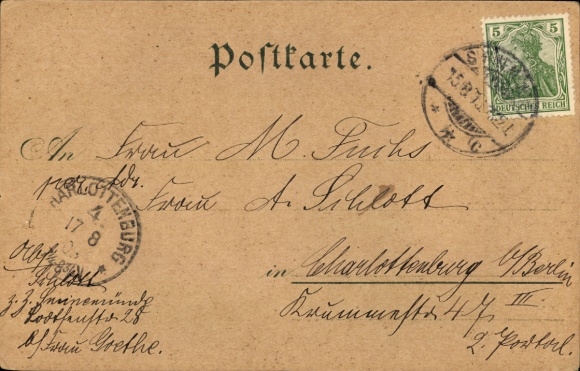 Postkarte.
5
DEUTSCHES REICH
* * C
An Frau M. Fuchs
per Adr.
Frau A. Schlott
CHARLOTTENBURG
4
17 8
*
in Charlottenburg b/Berlin
Krummestr 47 III.
2. Portal.
Abs.
Schlott
z. Z. Swinemünde
Lootsenstr 28
b/ Frau Goethe.